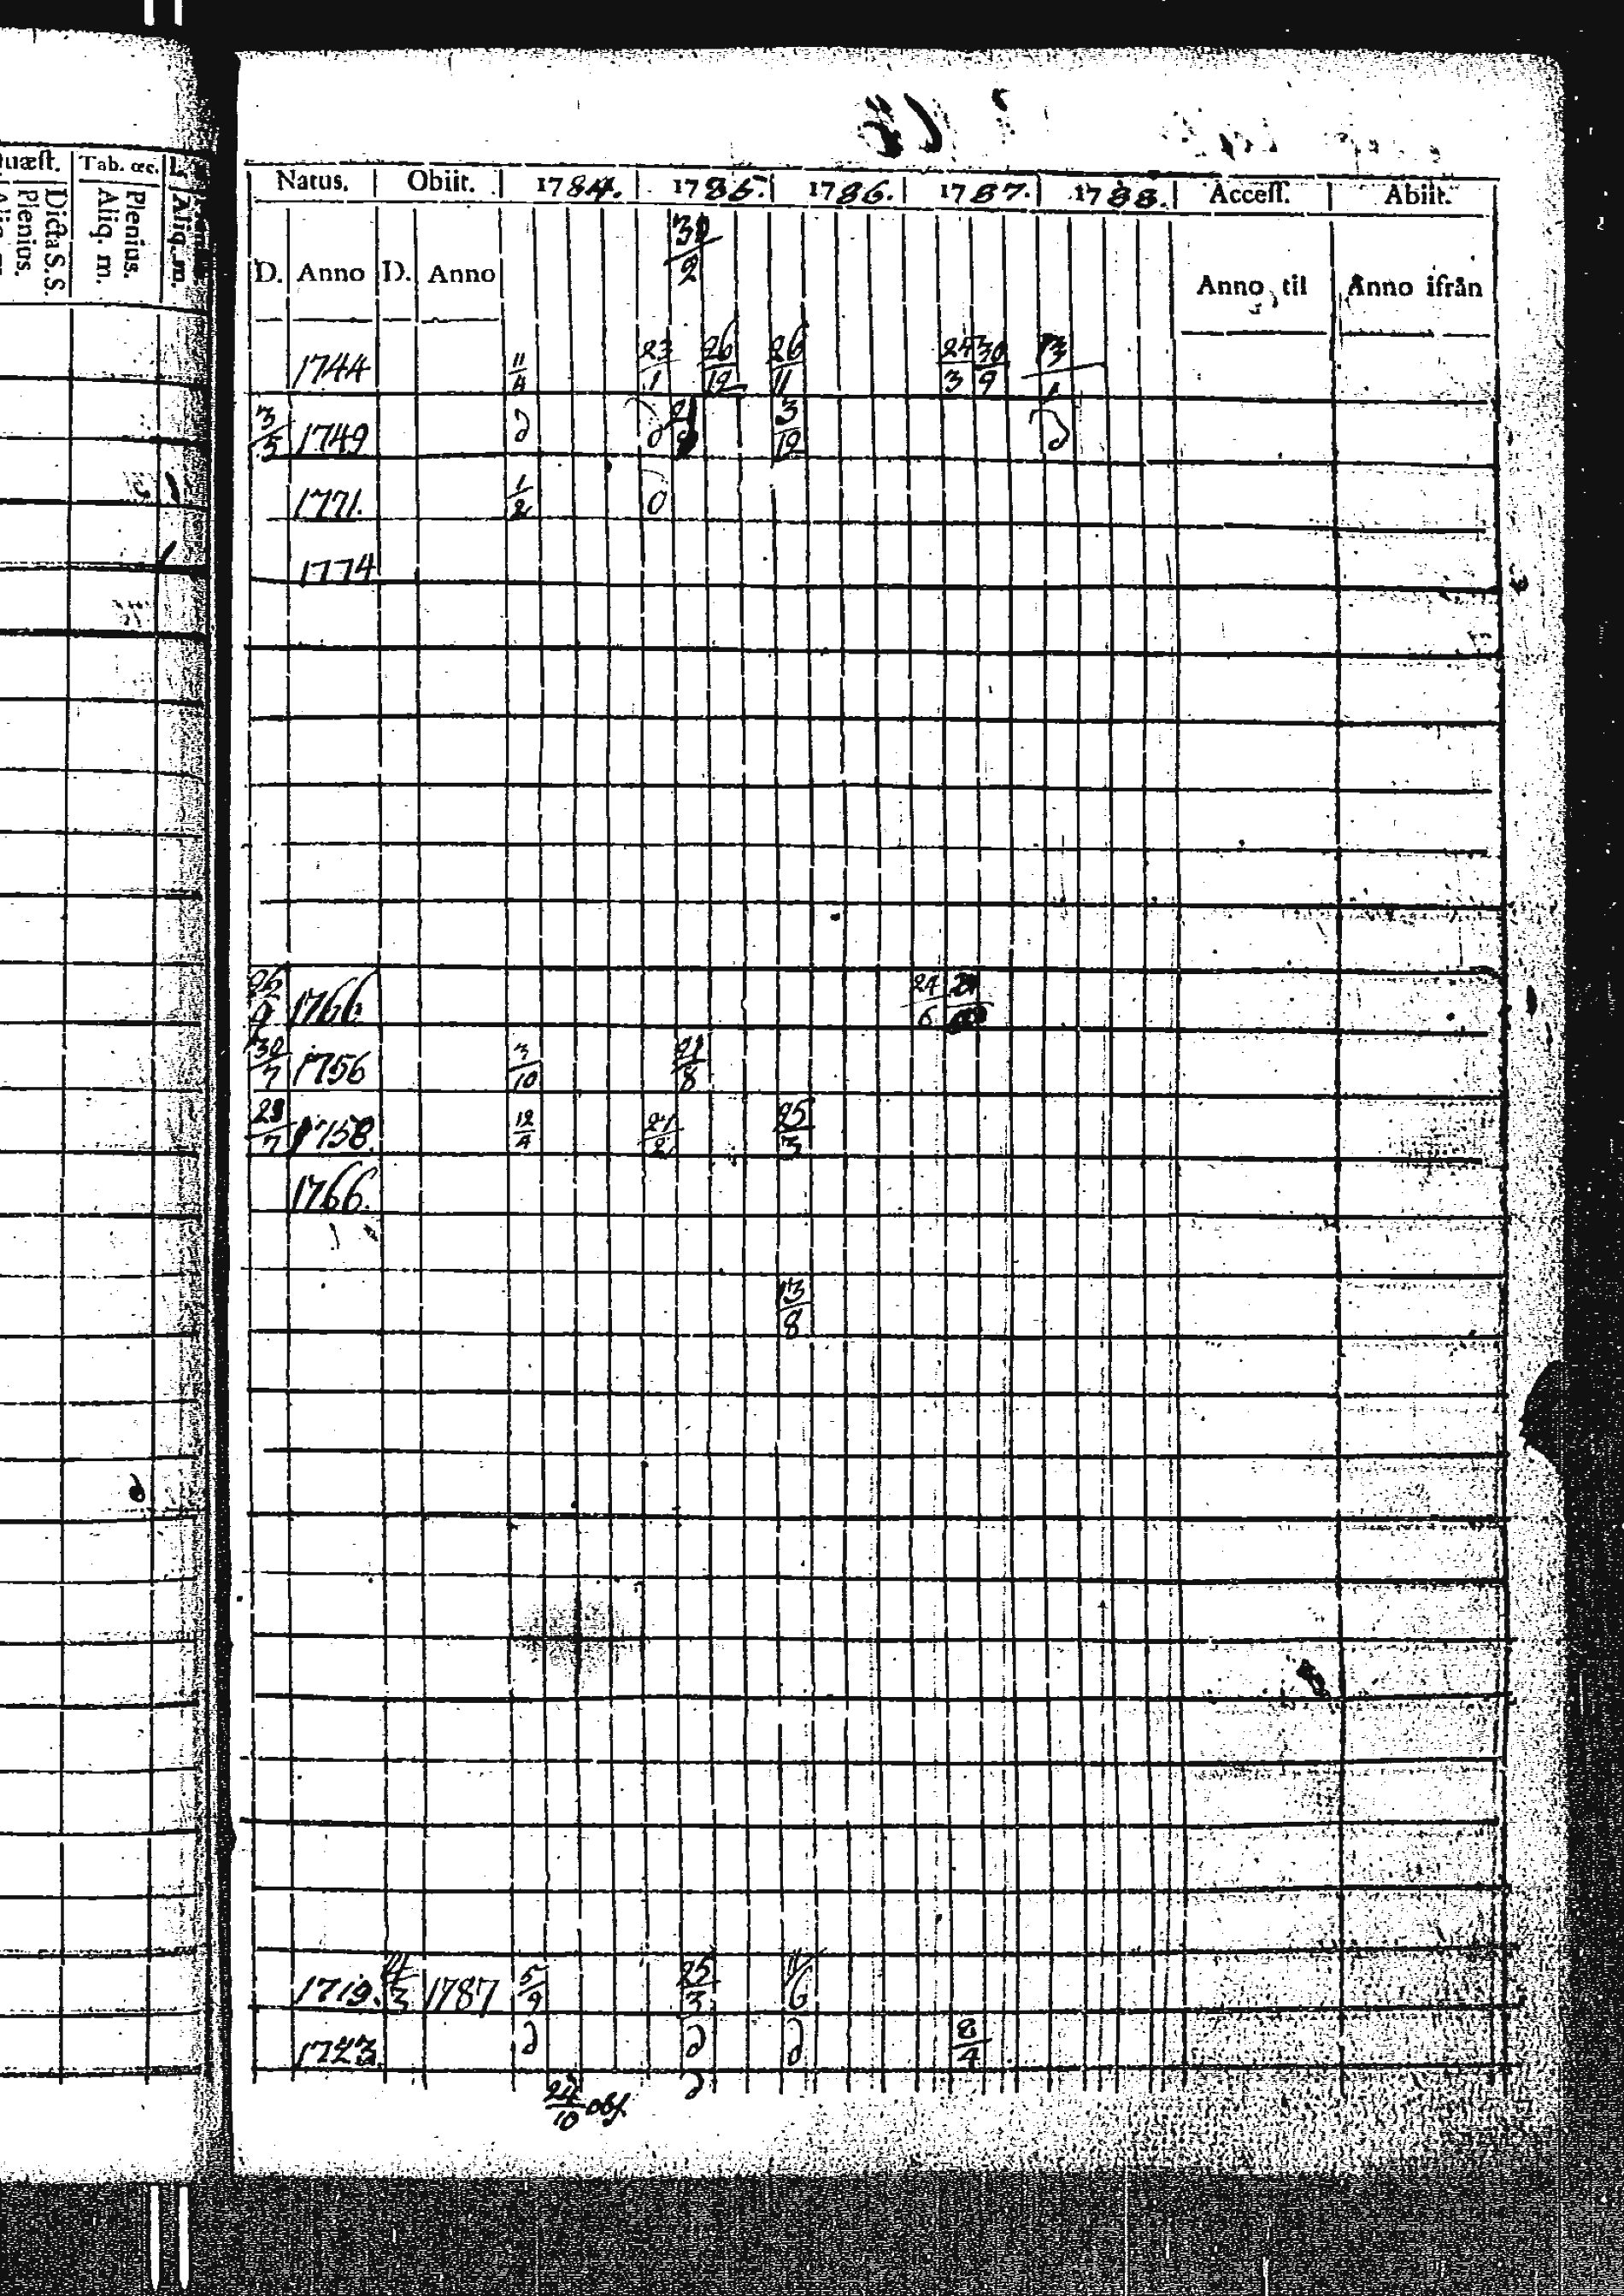 uæſt. Tab. œc. L.
Dicta S.S. Plenius. Plenius. Aliq. m. Aliq. m.
Natus. Obiit. 1784. 1785. 1786. 1787. 1788. Acceſſ. Abiit.
D. Anno D. Anno 30/2 Anno til Anno ifrån
1744 11/4 23/1 26/12 26/11 24/3 30/9 13/1
3/5 1749 d d 3/12 d
1771. 1/2 0
1774
26/9 1766 24/6
30/7 1756 3/10 21/8
1758. 12/4 24/2 25/3
1766.
13/8
1719. 1787 5/9 25/3 11/6
1723. d d d 8/4
24/10 obf d